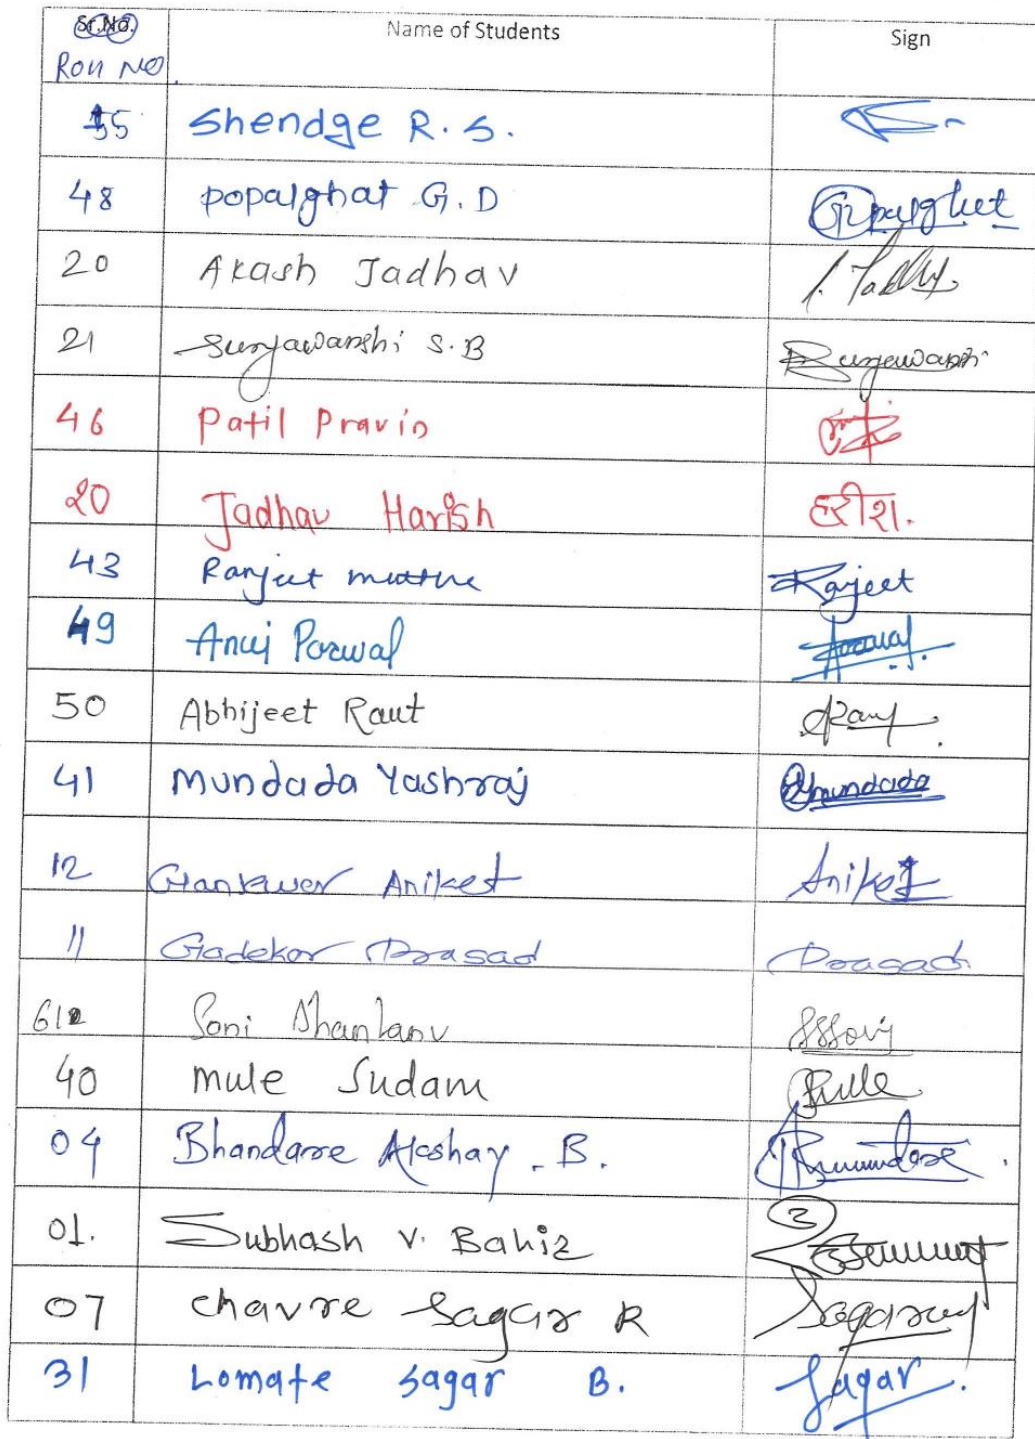 Sr.No. Name of Students Sign
Roll NO.
55 Shendge R. S.
48 popalghat G. D
20 Akash Jadhav
21 Suryawanshi S. B Suryawanshi
46 Patil Pravin
20 Jadhav Harish हरीश.
43 Ranjeet Ranjeet
49 Anuj Porwal
50 Abhijeet Raut
41 Mundada Yashraj Mundada
12 Aniket Aniket
11 Gadekar Prasad Prasad
Soni Shantanu
40 mule Sudam
04 Bhandare Akshay . B.
01. Subhash V. Bahir
07 chavre Sagar R Sagar
31 Lomate Sagar B. Sagar.